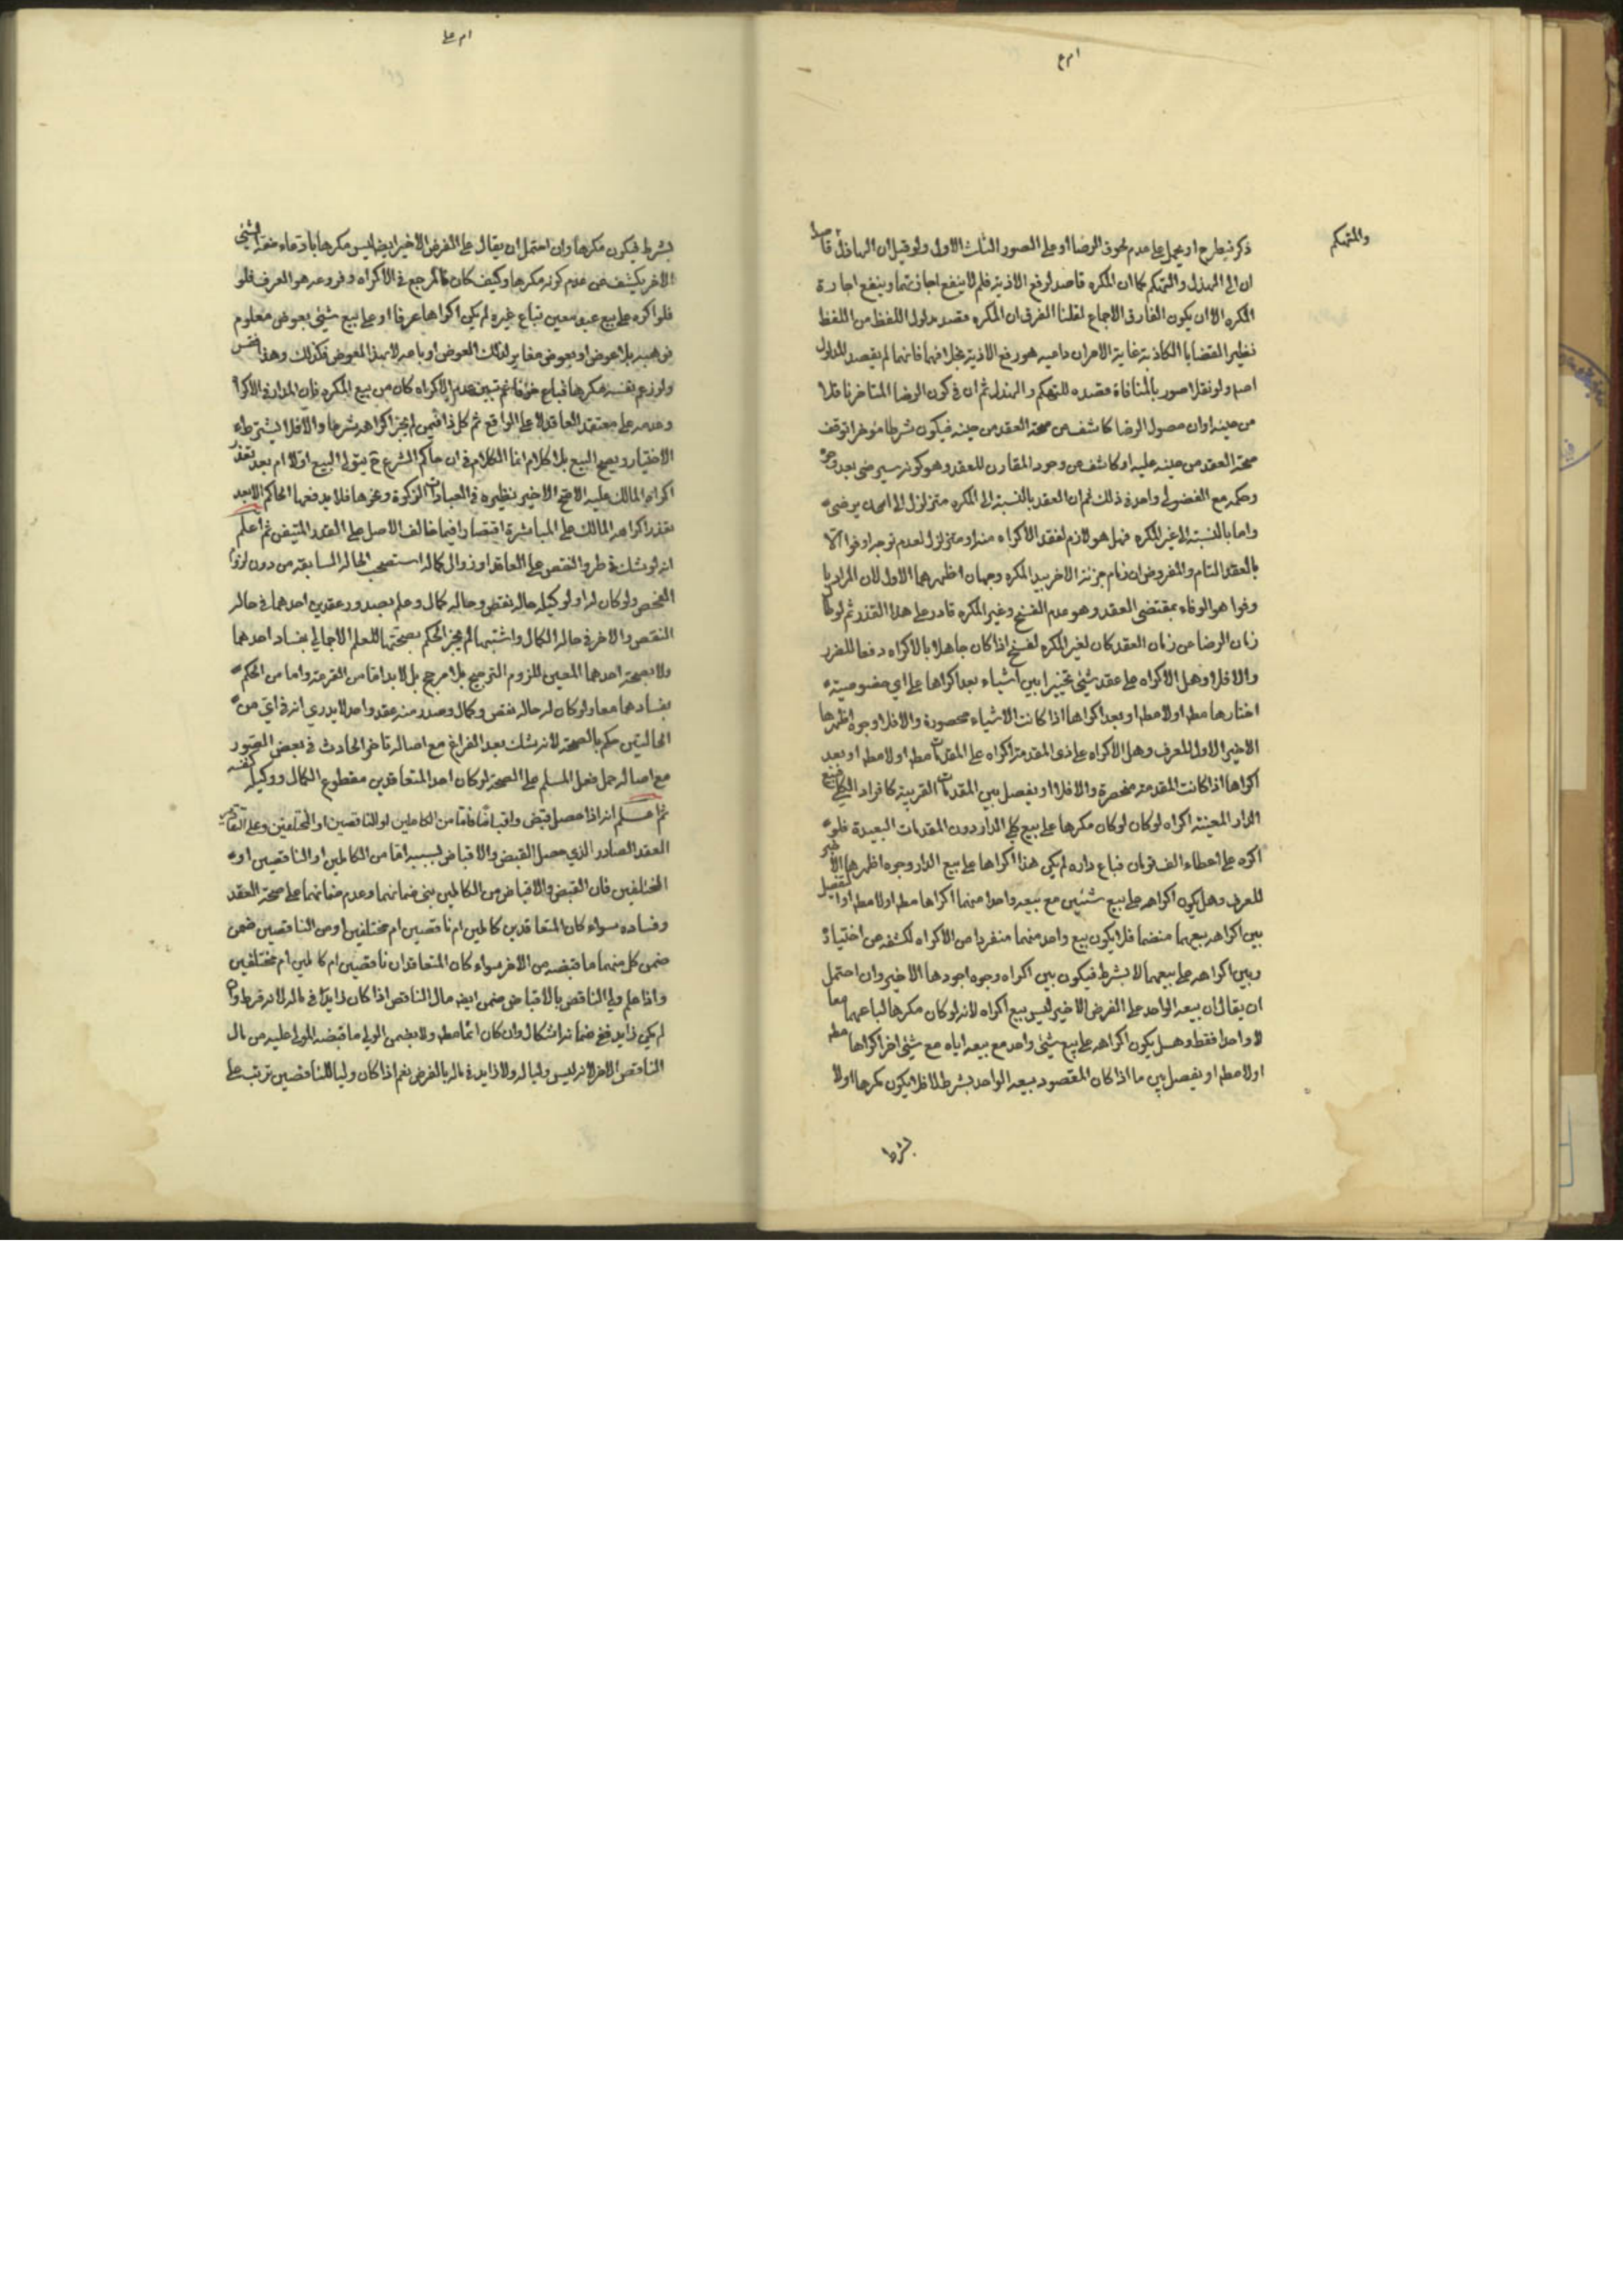 والمتهكم
ذكر فيطرح او يحمل على عدم لحوق الرضا او على الصور الثلث الاول ولو قيل ان الهازل قاصدا
ان الى الهزل والتهكم كما ان المكره قاصد لرفع الاذية فلم لا ينفع اجازتهما وينفع اجازة
المكره الا ان يكون الفارق الاجماع لقلنا الفرق ان المكره مقصد مدلول اللفظ من اللفظ
نظير القضايا الكاذبة غاية الامر ان داعيه هو رفع الاذية بخلافهما فانهما لم يقصد المدلول
اصلا ولو نقلا صور بالمنافاة مقصده للتهكم والهزل ثم ان في كون الرضا المتاخر ناقلا
من حينه او ان حصول الرضا كاشف عن صحة العقد من حينه فيكون شرطا مؤخرا توقف
صحة العقد من حينه عليه او كاشف عن وجود المقارن للعقد وهو كونه سيرضى بعد وجوه
وحكمه مع الفضولى واحد في ذلك ثم ان العقد بالنسبة الى المكره متزلزل الى ان يرضى
واما بالنسبة الى غير المكره فهل هو لازم لفقد الاكراه منه او متزلزل لعدم توجه اوفوا الا
بالعقد التام والمفروض ان تمام جزئه الاخر بيد المكره وجهان اظهرهما الاول لان المراد با
وفوا هو الوفاء بمقتضى العقد وهو عدم الفسخ وغير المكره قادر على هذا القدر ثم لو طا
زمان الرضا عن زمان العقد كان لغير المكره الفسخ اذا كان جاهلا بالاكراه دفعا للضرر
والا فلا وهل الاكراه على عقد شئ تخييرا بين اشياء بعد اكراها على اي خصوصية
اختارها مطه اولا مطه او بعد اكراها اذا كانت الاشياء محصورة والا فلا وجوه اظهرها
الاخير الاول للعرف وهل الاكراه على ذى المقدمة اكراه على المقدمات مطه اولا مطه او بعد
اكراها اذا كانت المقدمة منحصرة والا فلا او يفصل بين المقدمات القريبة كافراد الكلي فبيع
الدار المعينة اكراه لو كان لو كان مكرها على بيع كلي الدار دون المقدمات البعيدة فلو
اكره على اعطاء الف تومان فباع داره لم يكن هذا اكراها على بيع الدار وجوه اظهرها الاخير
للعرف وهل يكون اكراهه على بيع شئين مع بيعه واحدا منهما اكراها مطه اولا مطه او التفصيل
بين اكراهه بيعهما منضما فلا يكون بيع واحد منهما منفردا عن الاكراه لكشفه عن اختياره
وبين اكراهه على بيعهما لا بشرط فيكون بين اكراه وجوه اجودها الاخير وان احتمل
ان يقال ان بيعه الواحد على الفرض الاخير ليس بيع اكراه لانه لو كان مكرها لباعهما معا
لا واحدا فقط وهل يكون اكراهه على بيع شئ واحد مع بيعه اياه مع شئ اخر اكراها مطه
اولا مطه او يفصل بين ما اذا كان المقصود بيعه الواحد بشرط لا فلا يكون مكرها اولا
بشرط
بشرط فيكون مكرها وان احتمل ان يقال على الفرض الاخير ايضا ليس مكرها بادعاء ضمه الشئ
الاخر يكشف عن عدم كونه مكرها وكيف كان فالمرجع في الاكراه وفروعه هو العرف فلو
فلو اكره على بيع عبد معين فباع غيره لم يكن اكراها عرفا او على بيع شئ بعوض معلوم
فوهبه بلا عوض او بعوض مغاير لذلك العوض او باعه لا بهذا العوض فكذلك وهذا
ولو زعم نفسه مكرها فباع خوفا ثم تبين عدم الاكراه كان من بيع المكره فان المدار في الاكراه
وعدمه على معتقد العاقد لا على الواقع ثم كل ذا فيمن لم يجز اكراهه شرعا والا فلا يشترط
الاختيار ويصح البيع بلا كلام انما الكلام في ان حاكم الشرع ح يتولى البيع اولا ام بعد تعذر
اكراه المالك عليه الاصح الاخير نظيره في العبادات الزكوة ونحوها فلا يدفعها الحاكم الا بعد
تعذر اكراه المالك على المباشرة اقتصارا فيما خالف الاصل على القدر المتيقن ثم اعلم
انه لو شك في طرو النقص على العاقد او زوال كماله استصحب الحالة السابقة من دون لزوم
الفحص ولو كان له او لوكيله حالة نقص وحالة كمال وعلم بصدور عقدين احدهما في حالة
النقص والاخر في حالة الكمال واشتبها لم يجز الحكم بصحتهما للعلم الاجمالي بفساد احدهما
ولا بصحة احدهما المعين للزوم الترجيح بلا مرجح بل لا بد اما من القرعة واما من الحكم
بفسادهما معا ولو كان له حالة نقص وكمال وصدر منه عقد واحد لا يدري انه في اي من
الحالتين حكم بالصحة لانه شك بعد الفراغ مع اصالة تاخر الحادث في بعض الصور
مع اصالة حمل فعل المسلم على الصحة لو كان احد المتعاقدين مقطوع الكمال ووكيله كنفسه
ثم اعلم انه اذا حصل قبض واقباض فاما من الكاملين او الناقصين او المختلفين وعلى التقادير
العقد الصادر الذي حصل القبض والاقباض بسببه اما من الكاملين او الناقصين او
المختلفين فان القبض والاقباض من الكاملين بنى ضمانهما وعدم ضمانهما على صحة العقد
وفساده سواء كان المتعاقدين كاملين ام ناقصين ام مختلفين او من الناقصين ضمن
ضمن كل منهما ما قبضه من الاخر سواء كان المتعاقدان ناقصين ام كاملين ام مختلفين
واذا علم ولي الناقص بالاقباض ضمن ايضه مال الناقص اذا كان زايدا في ماله لانه فرط وان
لم يكن زايد ففي ضمانه اشكال وان كان اثما مطه ولا يضمن الولي ما قبضه المولى عليه من مال
الناقص الاخر لانه ليس وليا له ولا زايد في ماله بالفرض نعم اذا كان وليا للناقصين ترتب على